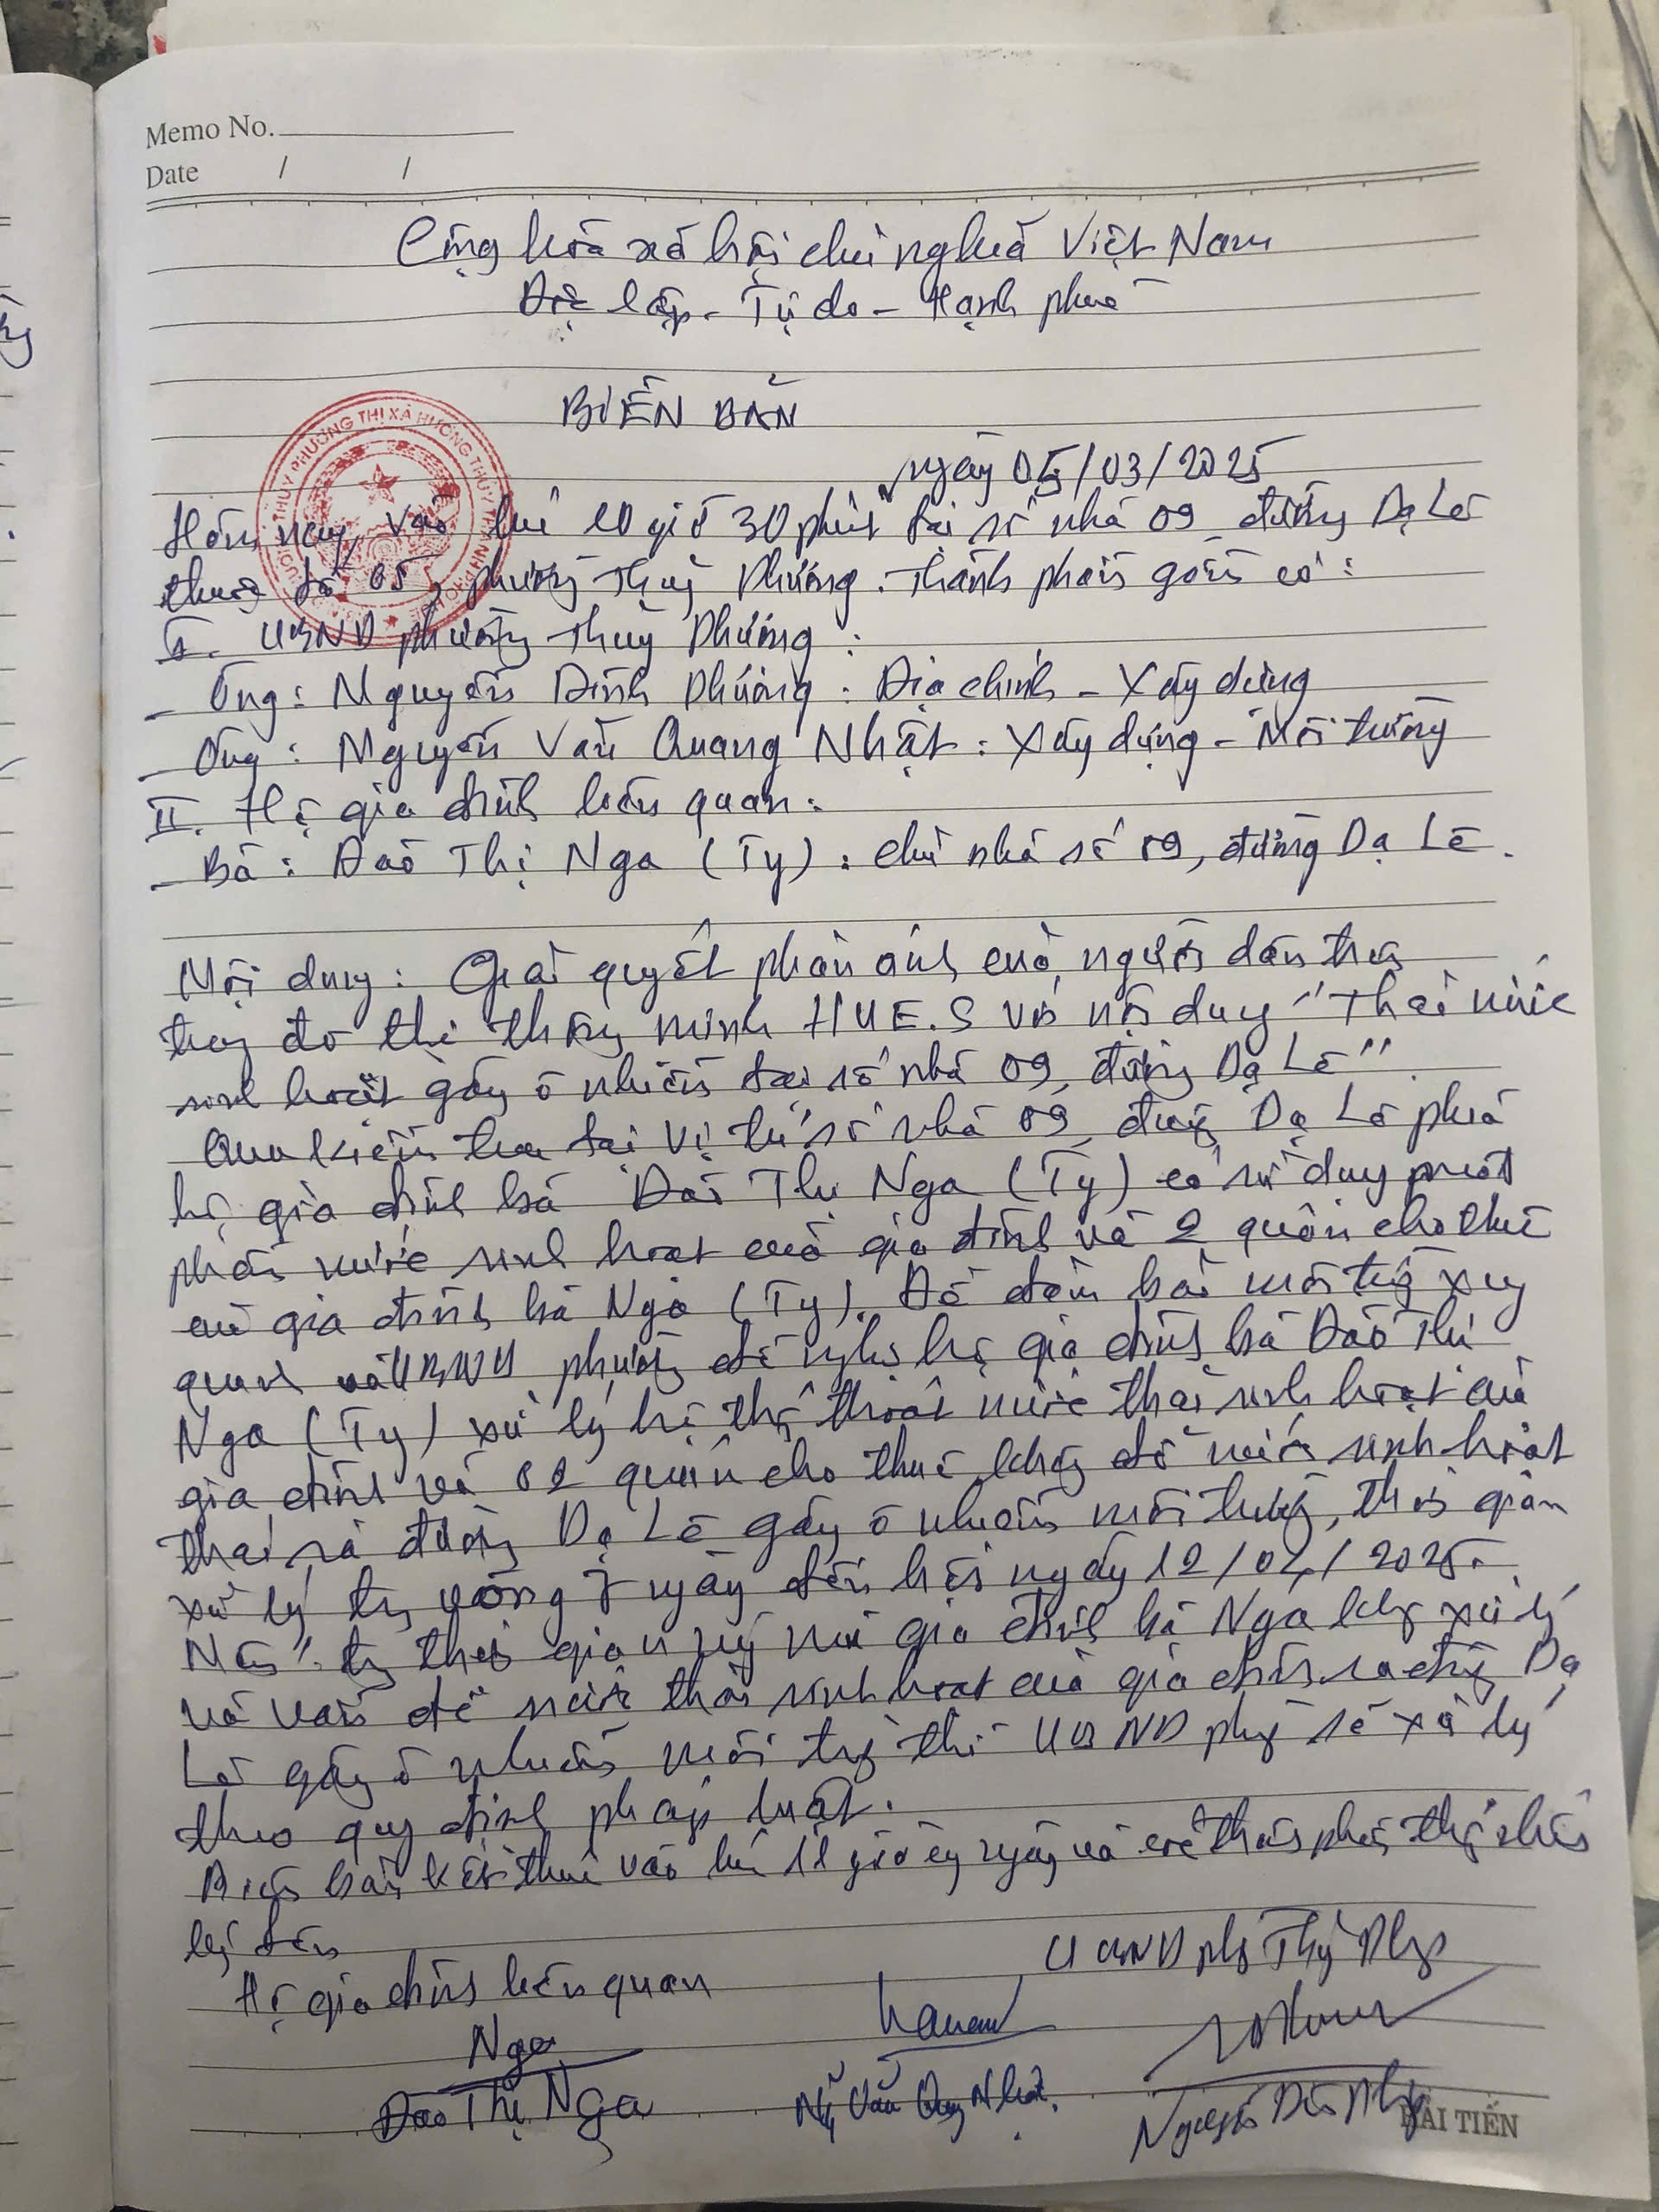 Memo No.
Date / /
Cộng hòa xã hội chủ nghĩa Việt Nam
Độc lập - Tự do - Hạnh phúc
BIÊN BẢN
ngày 05/03/2025
Hôm nay, vào lúc 10 giờ 30 phút tại số nhà 09, đường Dạ Lê
thuộc tổ 05, phường Thủy Phương. Thành phần gồm có:
I. UBND phường Thủy Phương:
- Ông: Nguyễn Đình Phương: Địa chính - Xây dựng
- Ông: Nguyễn Văn Quang Nhật: Xây dựng - Môi trường
II. Hộ gia đình liên quan:
- Bà: Đào Thị Nga (Ty): chủ nhà số 09, đường Dạ Lê.
Nội dung: Giải quyết phản ánh của người dân trên
trang đô thị thông minh HUE.S với nội dung "Thải nước
sinh hoạt gây ô nhiễm tại số nhà 09, đường Dạ Lê"
Qua kiểm tra tại vị trí số nhà 09, đường Dạ Lê phía
hộ gia đình bà Đào Thị Nga (Ty) có sử dụng một
phần nước sinh hoạt của gia đình và 2 quán cho thuê
của gia đình bà Nga (Ty). Để đảm bảo môi trường xung
quanh UBND phường đề nghị hộ gia đình bà Đào Thị
Nga (Ty) xử lý hệ thống thoát nước thải sinh hoạt của
gia đình và 02 quán cho thuê không để nước sinh hoạt
thải ra đường Dạ Lê gây ô nhiễm môi trường, thời gian
xử lý trong vòng 7 ngày đến hết ngày 12/03/2025.
Nếu trong thời gian này mà gia đình bà Nga không xử lý
và vẫn để nước thải sinh hoạt của gia đình ra đường Dạ
Lê gây ô nhiễm môi trường thì UBND phường sẽ xử lý
theo quy định pháp luật.
Biên bản kết thúc vào lúc 11 giờ cùng ngày và các thành phần thống nhất
ký tên
UBND phường Thủy Phương
Hộ gia đình liên quan
Nga
Đào Thị Nga
Ng Văn Quang Nhật
Nguyễn Đình Phương
HẢI TIẾN